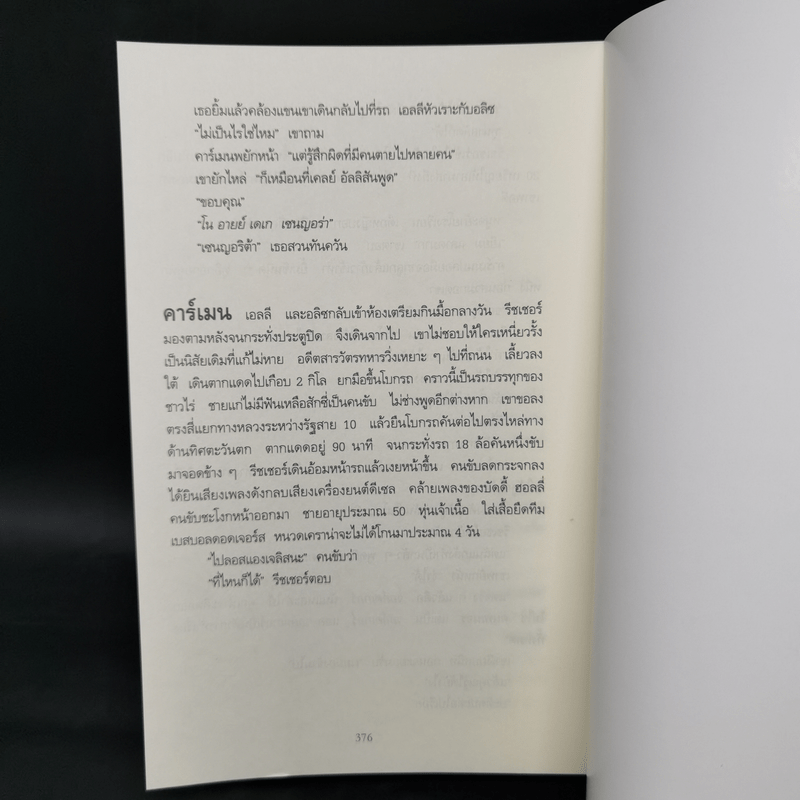 เธอยิ้มแล้วคล้องแขนเขาเดินกลับไปที่รถ เอลลีหัวเราะกับอลิซ
"ไม่เป็นไรใช่ไหม" เขาถาม
คาร์เมนพยักหน้า "แต่รู้สึกผิดที่มีคนตายไปหลายคน"
เขายักไหล่ "ก็เหมือนที่เคลย์ อัลลิสันพูด"
"ขอบคุณ"
"โน อายย์ เดเก เซนญอร่า"
"เซนญอริต้า" เธอสวนทันควัน
คาร์เมน เอลลี และอลิซกลับเข้าห้องเตรียมกินมื้อกลางวัน รีชเชอร์
มองตามหลังจนกระทั่งประตูปิด จึงเดินจากไป เขาไม่ชอบให้ใครเหนี่ยวรั้ง
เป็นนิสัยเดิมที่แก้ไม่หาย อดีตสารวัตรทหารวิ่งเหยาะ ๆ ไปที่ถนน เลี้ยวลง
ใต้ เดินตากแดดไปเกือบ 2 กิโล ยกมือขึ้นโบกรถ คราวนี้เป็นรถบรรทุกของ
ชาวไร่ ชายแก่ไม่มีฟันเหลือสักซี่เป็นคนขับ ไม่ช่างพูดอีกต่างหาก เขาขอลง
ตรงสี่แยกทางหลวงระหว่างรัฐสาย 10 แล้วยืนโบกรถคันต่อไปตรงไหล่ทาง
ด้านทิศตะวันตก ตากแดดอยู่ 90 นาที จนกระทั่งรถ 18 ล้อคันหนึ่งขับ
มาจอดข้าง ๆ รีชเชอร์เดินอ้อมหน้ารถแล้วเงยหน้าขึ้น คนขับลดกระจกลง
ได้ยินเสียงเพลงดังกลบเสียงเครื่องยนต์ดีเซล คล้ายเพลงของบัดดี้ ฮอลลี่
คนขับชะโงกหน้าออกมา ชายอายุประมาณ 50 หุ่นเจ้าเนื้อ ใส่เสื้อยืดทีม
เบสบอลดอดเจอร์ส หนวดเคราน่าจะไม่ได้โกนมาประมาณ 4 วัน
"ไปลอสแองเจลิสนะ" คนขับว่า
"ที่ไหนก็ได้" รีชเชอร์ตอบ
376